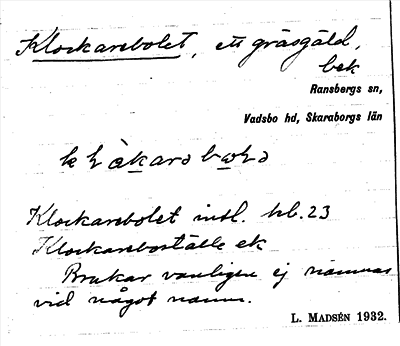 Klockarebolet, ett gräsgäld,
bek
Ransbergs sn,
Vadsbo hd, Skaraborgs län
Klockarebolet insl. hb. 23
Klockareboställe ek
Brukar vanligen ej nämnas
vid något namn.
L. MADSÉN 1932.